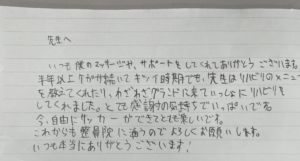 先生へ
いつも僕のマッサージや、サポートをしてくれてありがとうございます。
半年以上ケガが続いてキツイ時期でも、先生はリハビリのメニュー
を教えてくれたり、わざわざグランドに来ていっしょにリハビリを
してくれました。とても感謝の気持ちでいっぱいでる
今、自由にサッカーができてとても楽しいです。
これからも整骨院に通うのでよろしくお願いします。
いつも本当にありがとうございます!